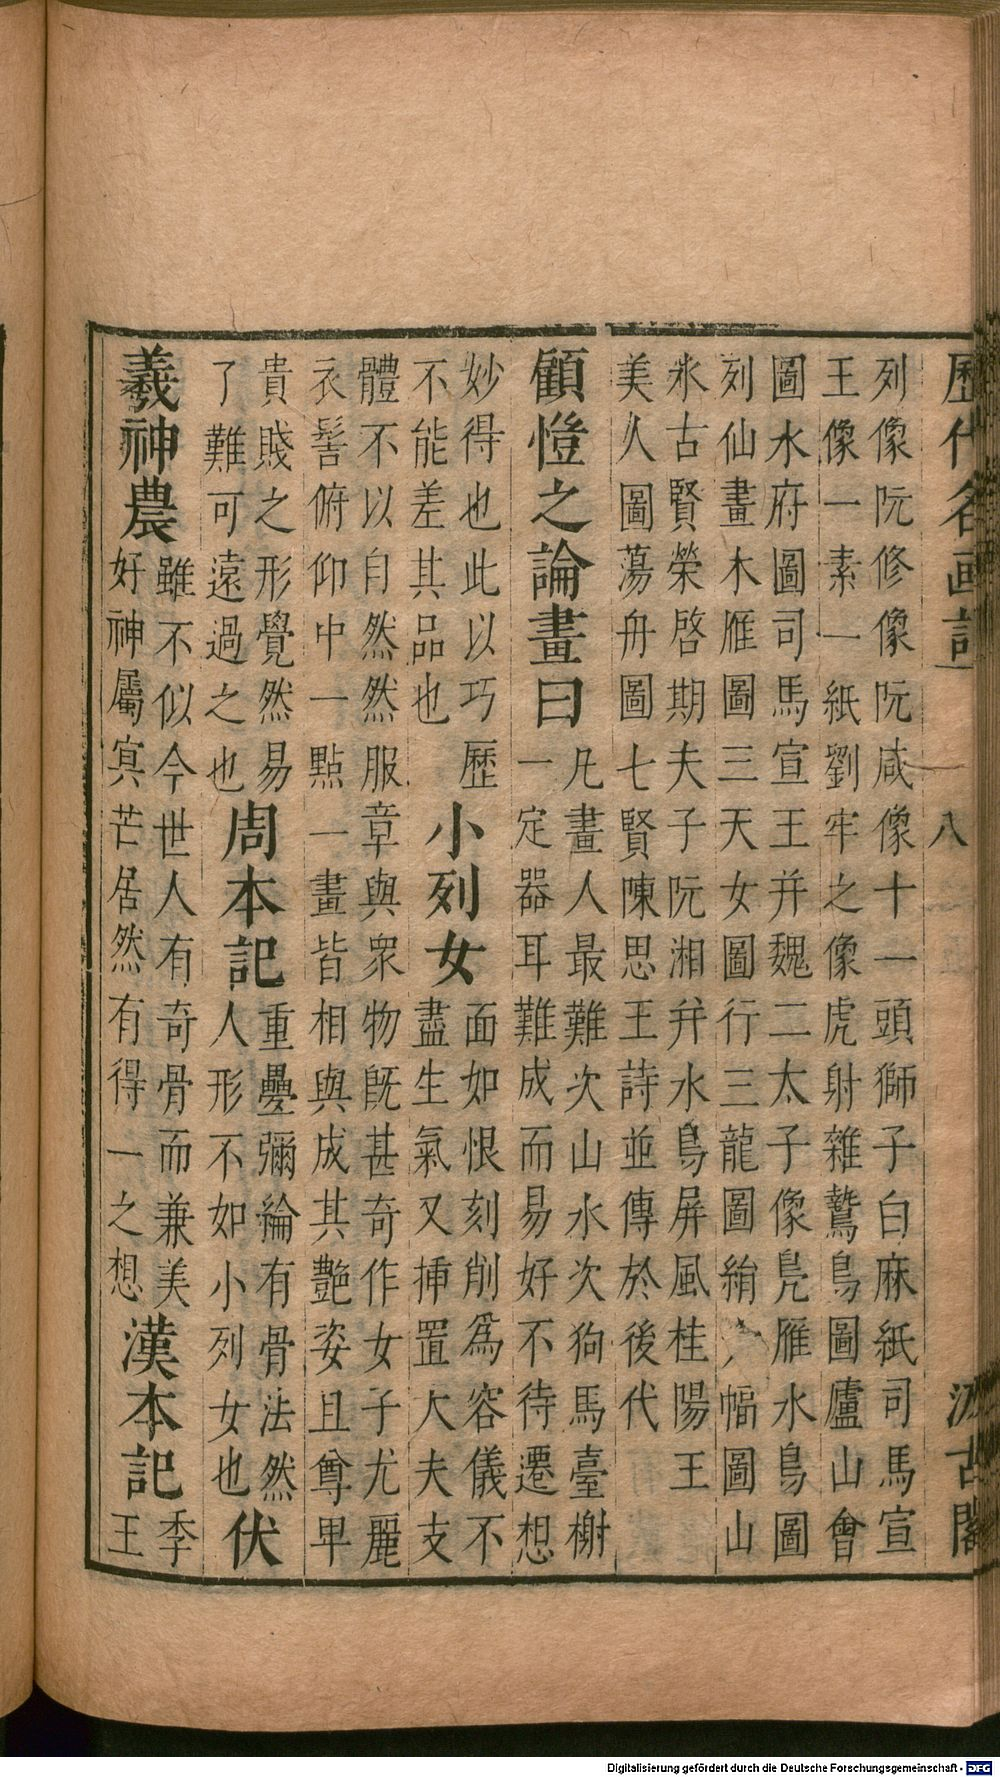 歷代名画記 八 汲古閣
列像阮修像阮咸像十一頭獅子白麻紙司馬宣
王像一素一紙劉牢之像虎射雜鷙鳥圖廬山會
圖水府圖司馬宣王并魏二太子像鳧雁水鳥圖
列仙畫木雁圖三天女圖行三龍圖絹幅圖山
水古賢榮啓期夫子阮湘并水鳥屏風桂陽王
美人圖蕩舟圖七賢陳思王詩並傳於後代
顧愷之論畫曰
凡畫人最難次山水次狗馬臺榭
一定器耳難成而易好不待遷想
妙得也此以巧歷
不能差其品也
小列女
面如恨刻削爲容儀不
盡生氣又揷置大夫支
體不以自然然服章與衆物旣甚奇作女子尤麗
衣髻俯仰中一點一畫皆相與成其艶姿且尊卑
貴賤之形覺然易
了難可遠過之也
周本記
重疊彌綸有骨法然
人形不如小列女也
伏
羲神農
雖不似今世人有奇骨而兼美
好神屬冥芒居然有得一之想
漢本記
季
王
Digitalisierung gefördert durch die Deutsche Forschungsgemeinschaft - DFG